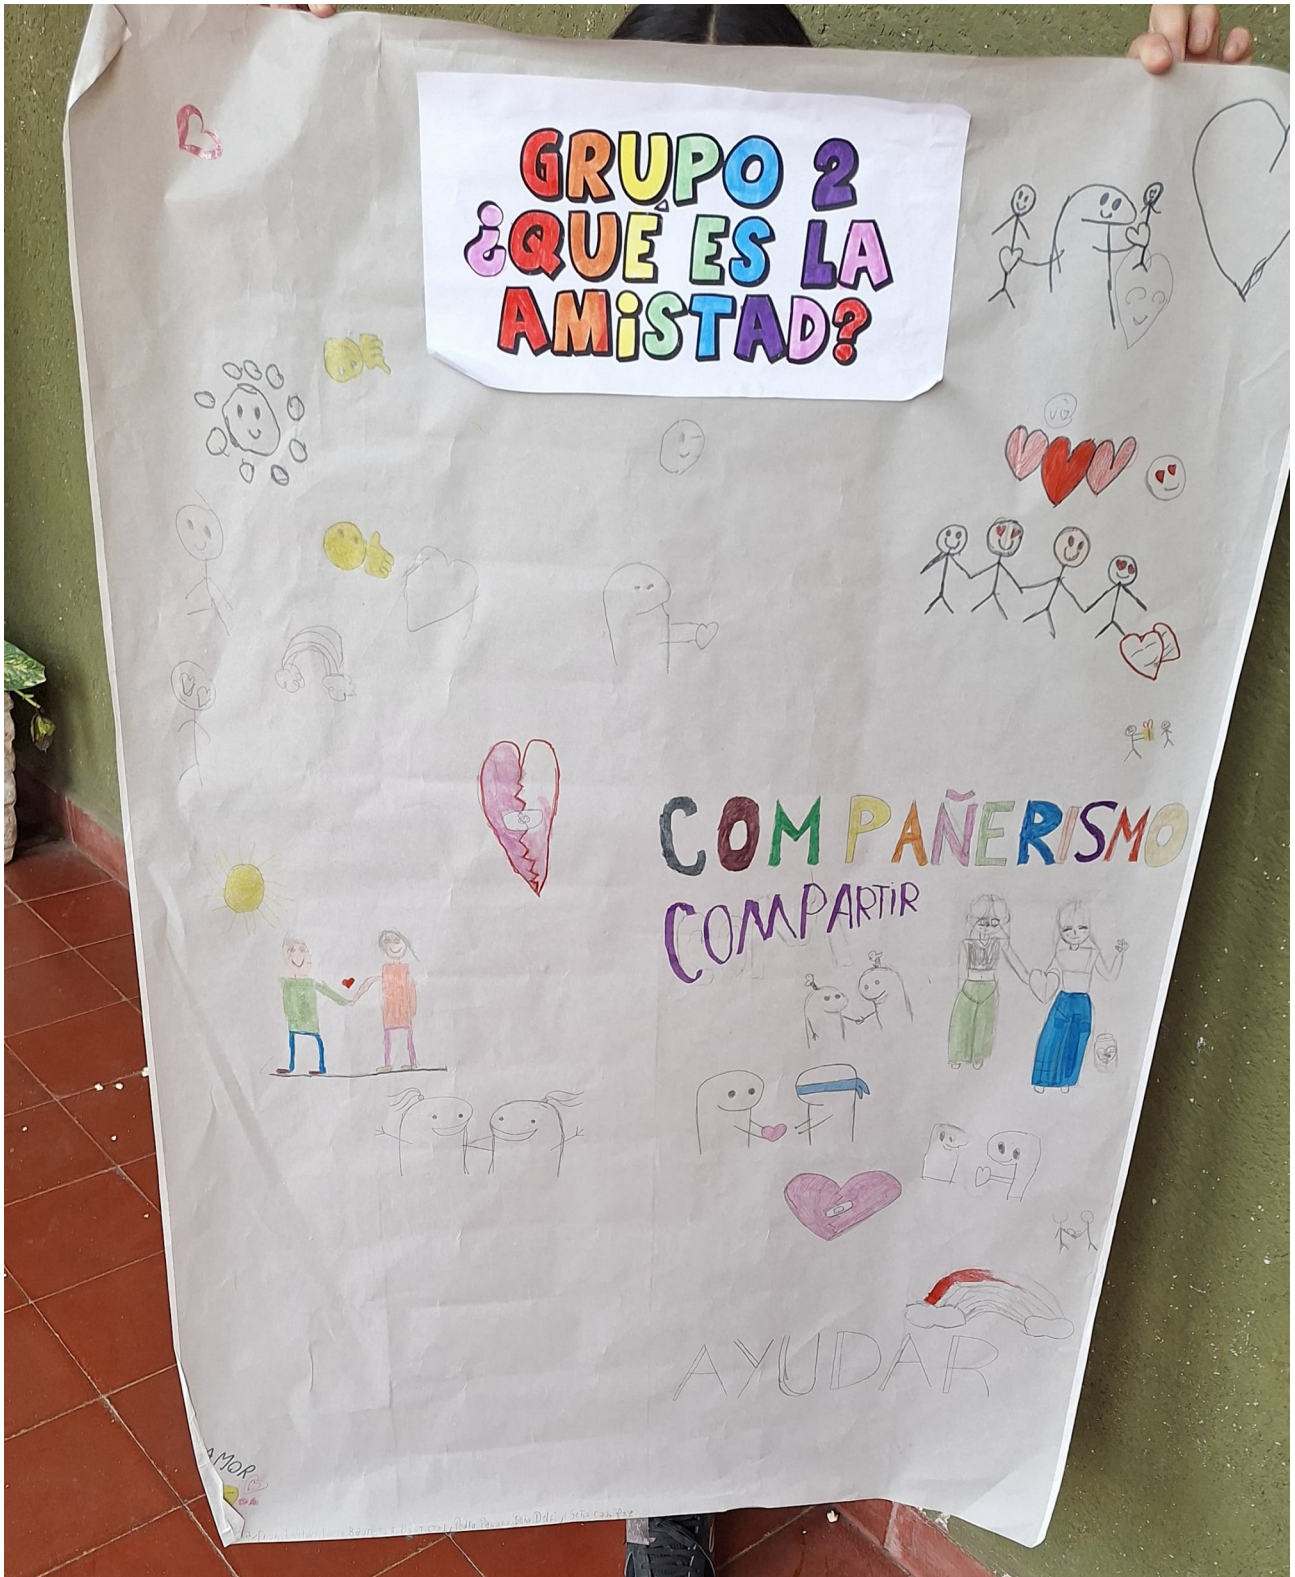 GRUPO 2
¿QUÉ ES LA
AMiSTAD?
COMPAÑERISMO
COMPARTiR
AYUDAR
AMOR